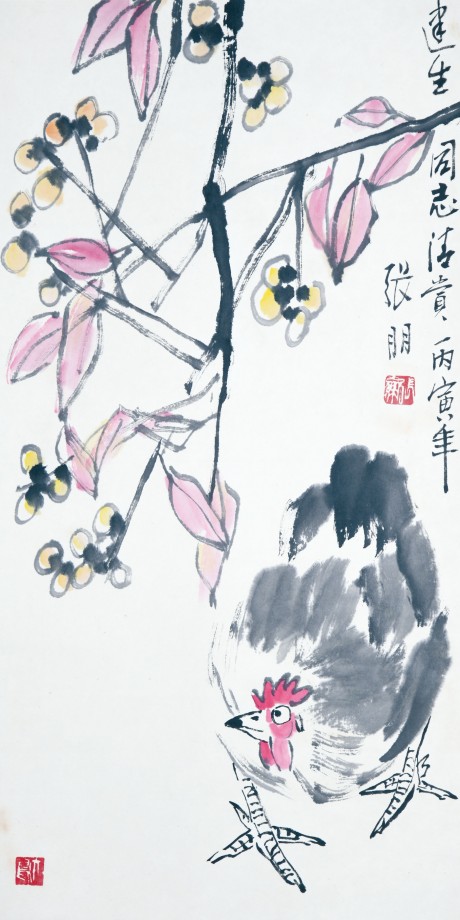 建生同志清賞丙寅年
張朋